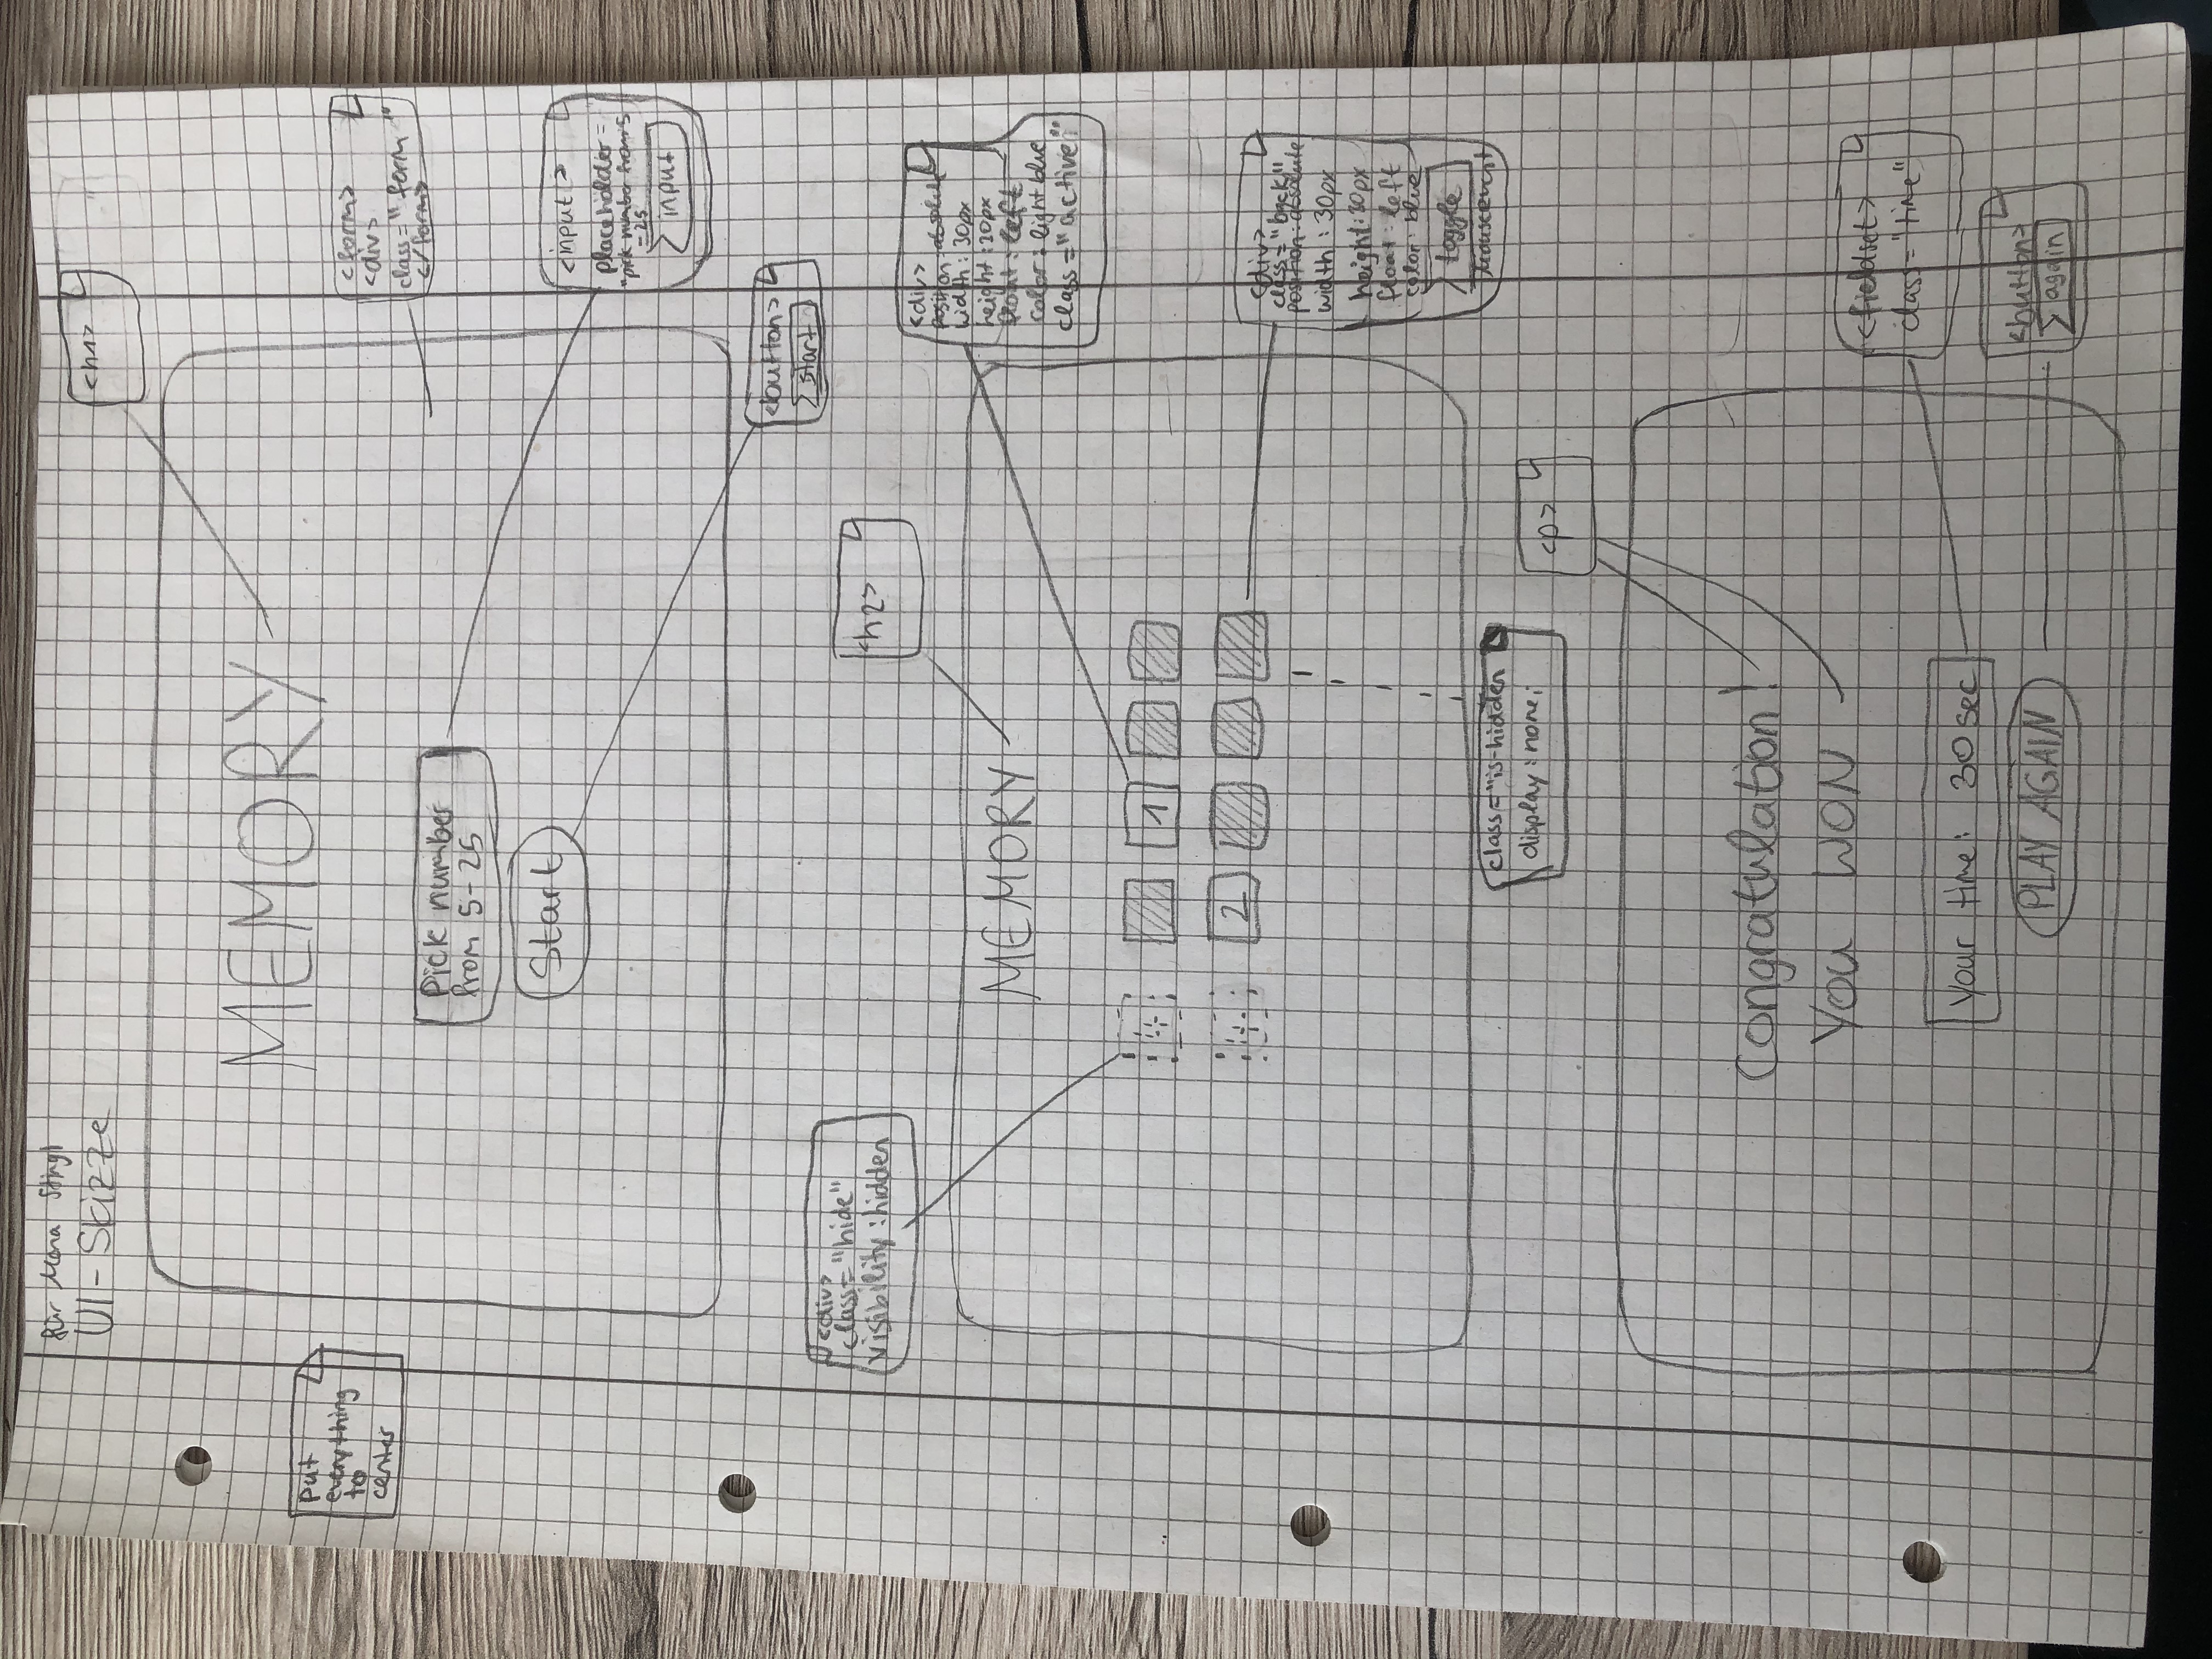 für Mona Stingl
UI-Skizze
<h1>
MEMORY
put
everything
to
center
<form>
<div>
class="form"
</form>
Pick number
from 5-25
Start
<input>
placeholder=
"pick number from 5
-25
input
<button>
start
<div>
class="hide"
visibility:hidden
<h2>
<div>
position:absolute
width: 30px
height:30px
float: left
color: light blue
class="active"
MEMORY
1
2
<div>
class="back"
position:absolute
width: 30px
height:30px
float: left
color: blue
toggle
Mouseevent
class="is-hidden
display:none;
<p>
Congratulation!
YOU WON
<fieldset>
class="time"
Your time: 30 sec
PLAY AGAIN
<button>
again